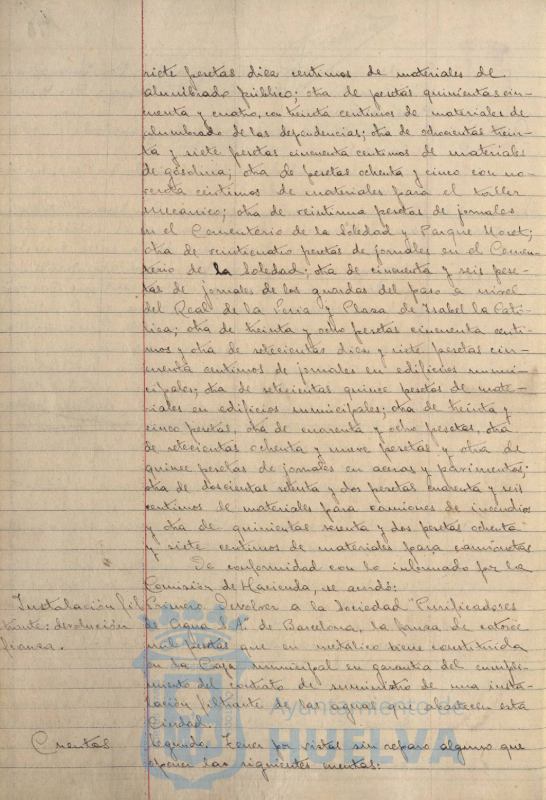 siete pesetas diez centimos de materiales de
alumbrado público; otra de pesetas quinientas cin-
cuenta y cuatro, con treinta centimos de materiales de
alumbrado de las dependencias; otra de ochocientas trein-
ta y siete pesetas cincuenta centimos de materiales
de gasolina; otra de pesetas ochenta y cinco con no-
venta centimos de materiales para el taller
mecánico; otra de veintiuna pesetas de jornales
en el Cementerio de la Soledad y Parque Moret;
otra de veinticuatro pesetas de jornales en el Cemen-
terio de la Soledad; otra de cincuenta y seis pese-
tas de jornales de los guardas del paso a nivel
del Real de la Feria y Plaza de Isabel la Cató-
lica; otra de treinta y ocho pesetas cincuenta centi-
mos y otra de setecientas diez y siete pesetas cin-
cuenta centimos de jornales en edificios muni-
cipales; otra de setecientas quince pesetas de mate-
riales en edificios municipales; otra de treinta y
cinco pesetas, otra de cuarenta y ocho pesetas, otra
de setecientas ochenta y nueve pesetas y otra de
quince pesetas de jornales en aceras y pavimentos;
otra de doscientas setenta y dos pesetas cuarenta y seis
centimos de materiales para camiones de incendios
y otra de quinientas y dos pesetas ochenta
y siete centimos de materiales para camionetas
De conformidad con lo informado por la
Comisión de Hacienda, se acordó:
Instalación fil
trante: devolución
fianza.
Primero. Devolver a la Sociedad "Purificadores
de Agua S.A." de Barcelona, la fianza de catorce
mil pesetas que en metálico tiene constituida
en la Caja municipal en garantia del cumpli-
miento del contrato de suministro de una insta-
lación filtrante de las aguas que abastecen esta
Ciudad.
Cuentas
Segundo. Tener por vistas sin reparo alguno que
oponer las siguientes cuentas:
Ayuntamiento de
HUELVA